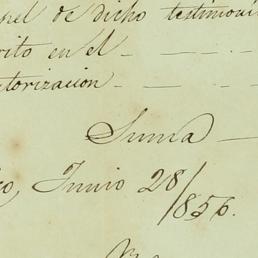 de dicho testimoni
rito en el — . — . —
torizacion — . — . —
Suma —
Junio 28/856.